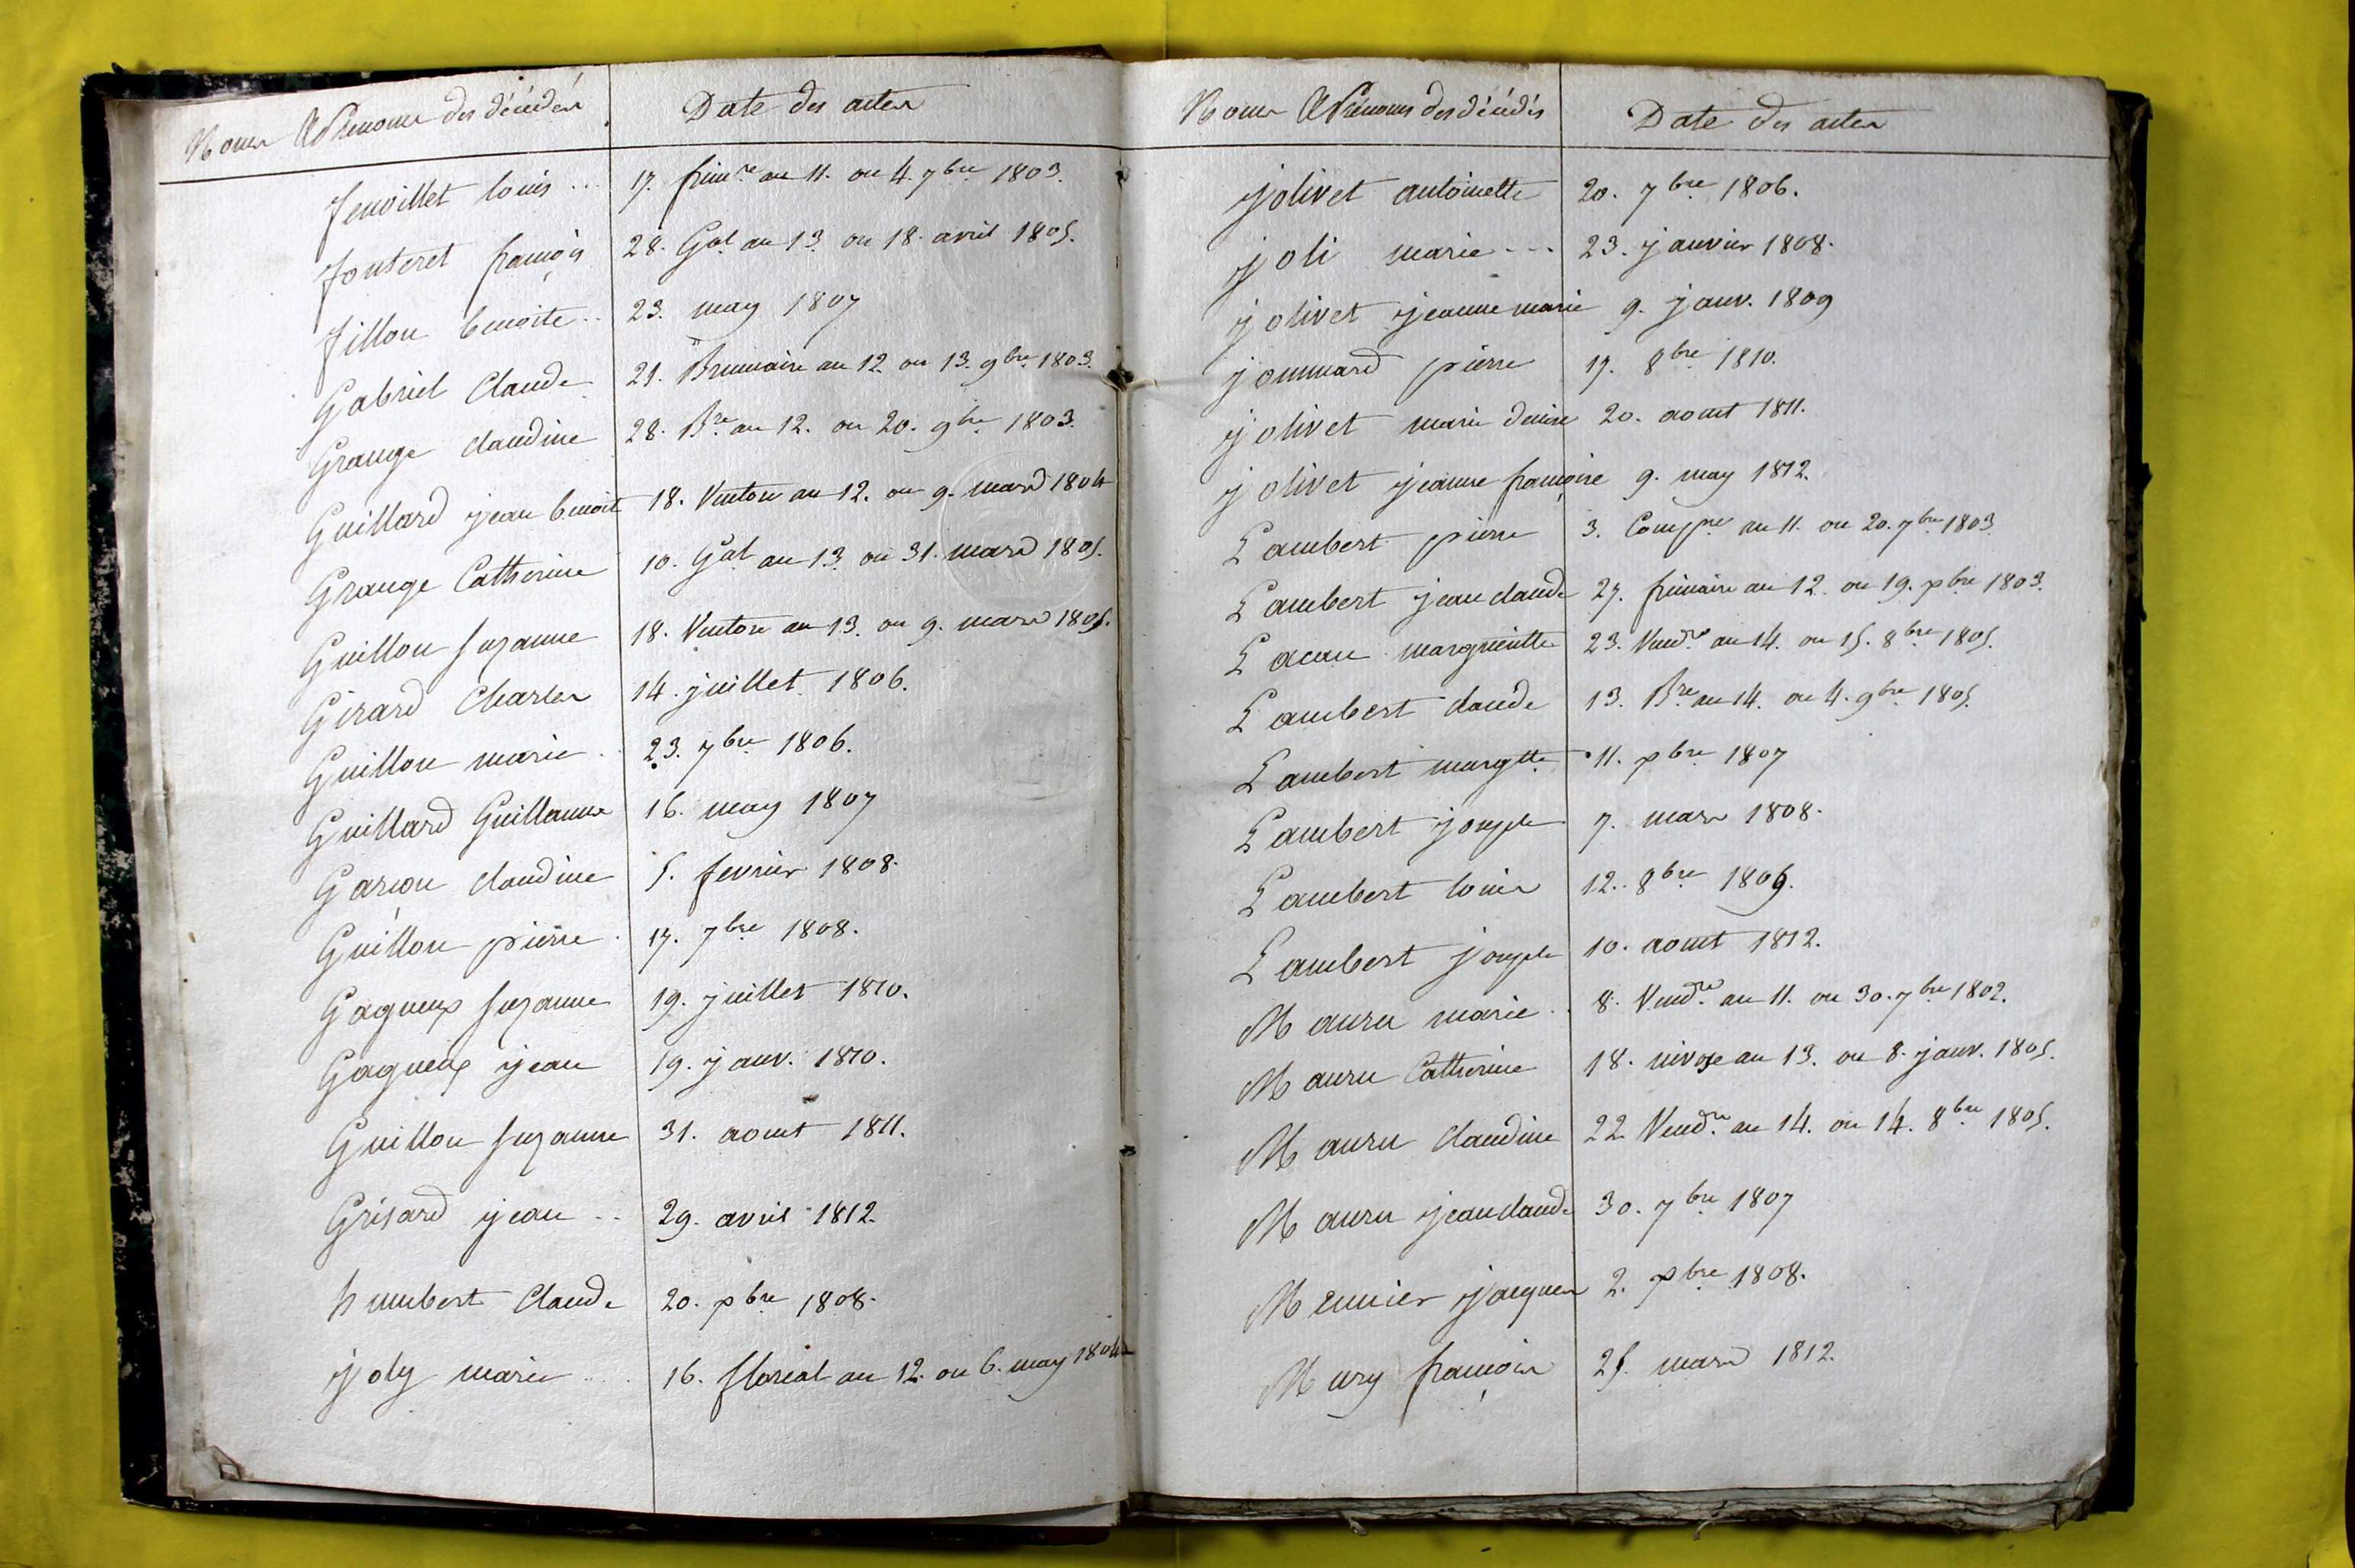 Noms & Prénoms des décédés Date des actes
feuillet louis ... 17. frim.re an 11. ou 4. 7bre 1803.
fonteret françois 28. G.al an 13. ou 18. avril 1805.
fillon benoite .. 23. may 1807
Gabriel Claude 21. Brumaire an 12. ou 13. 9bre 1803.
Grange claudine 28. B.re an 12. ou 20. 9bre 1803.
Guillard jean benoit 18. Ventose an 12. ou 9. mars 1804
Grange Catherine 10. G.al an 13. ou 31. mars 1805.
Guillon suzanne 18. Ventose an 13. ou 9. mars 1805.
Girard Charles 14. juillet 1806.
Guillon marie . 23. 7bre 1806.
Guillard Guillaume 16. may 1807
Garçon claudine 5. fevrier 1808.
Guillon pierre . 17. 7bre 1808.
Gagneux suzanne 19. juillet 1810.
Gagneux jean 19. janv. 1810.
Guillon suzanne 31. aout 1811.
Grisard jean .. 29. avril 1812.
humbert Claude 20. xbre 1808.
joly marie ... 16. floreal an 12. ou 6. may 1804
Noms & Prénoms des décédés Date des actes
jolivet antoinette 20. 7bre 1806.
joli marie --- 23. janvier 1808.
jolivet jeanne marie 9. janv. 1809
jommard pierre 17. 8bre 1810.
jolivet marie denise 20. aout 1811.
jolivet jeanne françoise 9. may 1812.
Lambert pierre 3. Comp.re an 11. ou 20. 7bre 1803.
Lambert jean claude 27. frimaire an 12. ou 19. xbre 1803.
Lacau margueritte 23. Vend.re an 14. ou 15. 8bre 1805.
Lambert claude 13. B.re an 14. ou 4. 9bre 1805.
Lambert margtte 11. xbre 1807
Lambert joseph 7. mars 1808.
Lambert louis 12. 8bre 1809.
Lambert joseph 10. aout 1812.
Mauru marie .. 8. Vend.re an 11. ou 30. 7bre 1802.
Mauru Catherine 18. nivose an 13. ou 8. janv. 1805.
Mauru claudine 22. Vend.re an 14. ou 14. 8bre 1805.
Mauru jean claude 30. 7bre 1807
Meunier jacques 2. xbre 1808.
Mury françois 25. mars 1812.